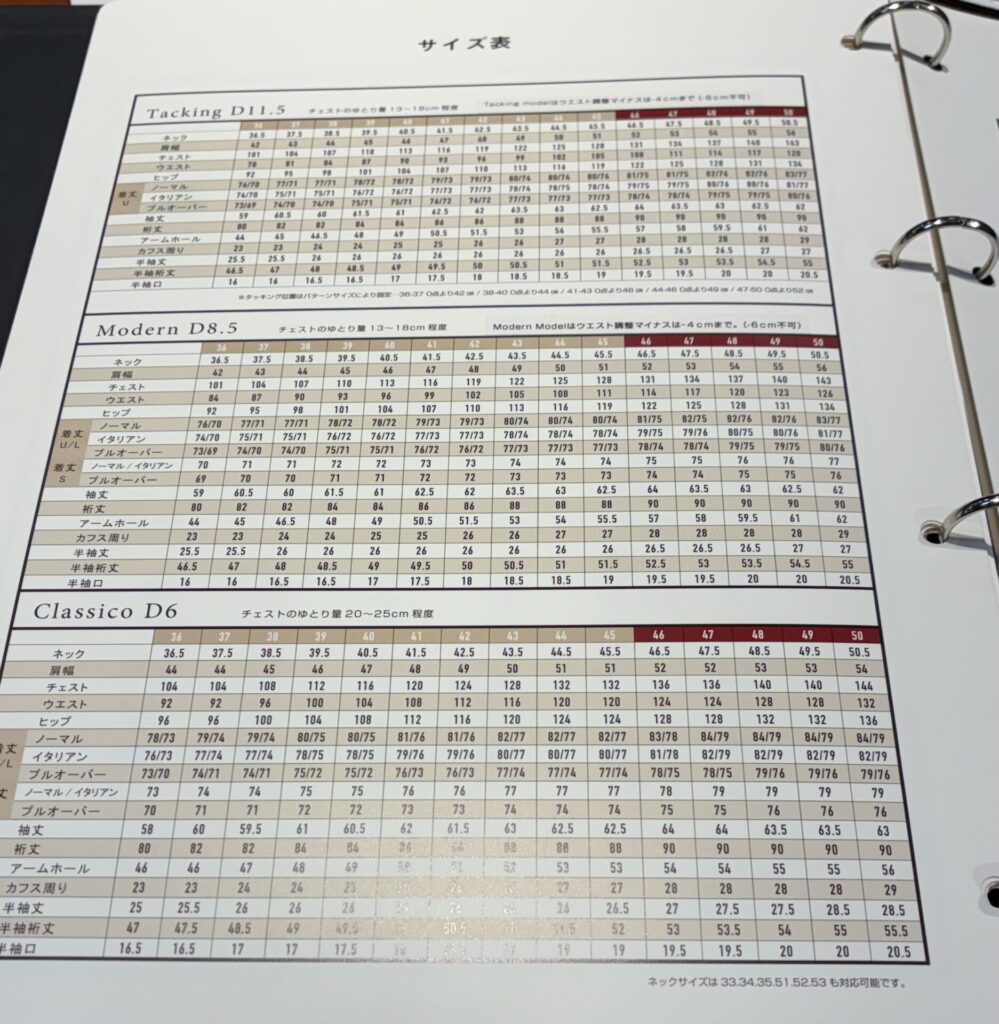 サイズ表
Tacking D11.5 チェストのゆとり量 13～18cm 程度 Tacking modelはウエスト調整マイナスは-4cmまで (-6cm不可)
36 37 38 39 40 41 42 43 44 45 46 47 48 49 50
ネック 36.5 37.5 38.5 39.5 40.5 41.5 42.5 43.5 44.5 45.5 46.5 47.5 48.5 49.5 50.5
肩幅 42 43 44 45 46 47 48 49 50 51 52 53 54 55 56
チェスト 101 104 107 110 113 116 119 122 125 128 131 134 137 140 143
ウエスト 78 81 84 87 90 93 96 99 102 105 108 111 114 117 120
ヒップ 92 95 98 101 104 107 110 113 116 119 122 125 128 131 134
着丈 U
ノーマル 76/70 77/71 77/71 78/72 78/72 79/73 79/73 80/74 80/74 80/74 81/75 82/76 82/76 82/76 83/77
イタリアン 74/70 75/71 75/71 76/72 76/72 77/73 77/73 78/74 78/74 78/74 79/75 79/76 80/75 80/76 81/77
プルオーバー 73/69 74/70 74/70 75/71 75/71 76/72 76/72 77/73 77/73 77/73 78/74 78/74 79/75 79/75 80/76
袖丈 59 60.5 60 61.5 61 62.5 62 63.5 63 62.5 64 63.5 63 62.5 62
裄丈 80 82 82 84 84 86 86 88 88 88 90 90 90 90 90
アームホール 44 45 46.5 48 49 50.5 51.5 53 54 55.5 57 58 59.5 61 62
カフス周り 23 23 24 24 25 25 26 26 27 27 28 28 28 28 29
半袖丈 25.5 25.5 26 26 26 26 26 26 26 26 26.5 26.5 26.5 27 27
半袖裄丈 46.5 47 48 48.5 49 49.5 50 50.5 51 51.5 52.5 53 53.5 54.5 55
半袖口 16 16 16.5 16.5 17 17.5 18 18.5 18.5 19 19.5 19.5 20 20 20.5
※タッキング位置はパターンサイズにより固定 36-37 0点より42㎝ / 38-40 0点より44㎝ / 41-43 0点より46㎝ / 44-46 0点より49㎝ / 47-50 0点より52㎝
Modern D8.5 チェストのゆとり量 13～18cm 程度 Modern Modelはウエスト調整マイナスは-4cmまで。(-6cm不可)
36 37 38 39 40 41 42 43 44 45 46 47 48 49 50
ネック 36.5 37.5 38.5 39.5 40.5 41.5 42.5 43.5 44.5 45.5 46.5 47.5 48.5 49.5 50.5
肩幅 42 43 44 45 46 47 48 49 50 51 52 53 54 55 56
チェスト 101 104 107 110 113 116 119 122 125 128 131 134 137 140 143
ウエスト 84 87 90 93 96 99 102 105 108 111 114 117 120 123 126
ヒップ 92 95 98 101 104 107 110 113 116 119 122 125 128 131 134
着丈 U/L
ノーマル 76/70 77/71 77/71 78/72 78/72 79/73 79/73 80/74 80/74 80/74 81/75 82/75 82/76 82/76 83/77
イタリアン 74/70 75/71 75/71 76/72 76/72 77/73 77/73 78/74 78/74 78/74 79/75 79/76 80/75 80/76 81/77
プルオーバー 73/69 74/70 74/70 75/71 75/71 76/72 76/72 77/73 77/73 77/73 78/74 78/74 79/75 79/75 80/76
着丈 S
ノーマル / イタリアン 70 71 71 72 72 73 73 74 74 74 75 75 76 76 77
プルオーバー 69 70 70 71 71 72 72 73 73 73 74 74 75 75 76
袖丈 59 60.5 60 61.5 61 62.5 62 63.5 63 62.5 64 63.5 63 62.5 62
裄丈 80 82 82 84 84 86 86 88 88 88 90 90 90 90 90
アームホール 44 45 46.5 48 49 50.5 51.5 53 54 55.5 57 58 59.5 61 62
カフス周り 23 23 24 24 25 25 26 26 27 27 28 28 28 28 29
半袖丈 25.5 25.5 26 26 26 26 26 26 26 26 26.5 26.5 26.5 27 27
半袖裄丈 46.5 47 48 48.5 49 49.5 50 50.5 51 51.5 52.5 53 53.5 54.5 55
半袖口 16 16 16.5 16.5 17 17.5 18 18.5 18.5 19 19.5 19.5 20 20 20.5
Classico D6 チェストのゆとり量 20～25cm 程度
36 37 38 39 40 41 42 43 44 45 46 47 48 49 50
ネック 36.5 37.5 38.5 39.5 40.5 41.5 42.5 43.5 44.5 45.5 46.5 47.5 48.5 49.5 50.5
肩幅 44 44 45 46 47 48 49 50 51 51 52 52 53 53 54
チェスト 104 104 108 112 116 120 124 128 132 132 136 136 140 140 144
ウエスト 92 92 96 100 104 108 112 116 120 120 124 124 128 128 132
ヒップ 96 96 100 104 108 112 116 120 124 124 128 128 132 132 136
着丈 /L
ノーマル 78/73 79/74 79/74 80/75 80/75 81/76 81/76 82/77 82/77 82/77 83/78 84/79 84/79 84/79 84/79
イタリアン 76/73 77/74 77/74 78/75 78/75 79/76 79/76 80/77 80/77 80/77 81/78 82/79 82/79 82/79 82/79
プルオーバー 73/70 74/71 74/71 75/72 75/72 76/73 76/73 77/74 77/74 77/74 78/75 78/75 79/76 79/76 79/76
丈
ノーマル / イタリアン 73 74 74 75 75 76 76 77 77 77 78 79 79 79 79
プルオーバー 70 71 71 72 72 73 73 74 74 74 75 75 76 76 76
袖丈 58 60 59.5 61 60.5 62 61.5 63 62.5 62.5 64 64 63.5 63.5 63
裄丈 80 82 82 84 84 86 86 88 88 88 90 90 90 90 90
アームホール 46 46 47 48 49 52 53 53 54 54 55 55 56
カフス周り 23 23 24 24 25 26 27 27 28 28 28 28 29
半袖丈 25 25.5 26 26 26 26 26 26 26.5 27 27.5 27.5 28.5 28.5
半袖裄丈 47 47.5 48.5 49 49.5 50.5 51 51.5 52 53 53.5 54 55 55.5
半袖口 16.5 16.5 17 17 17.5 19 19 19 19.5 19.5 20 20 20.5
ネックサイズは 33.34.35.51.52.53 も対応可能です。